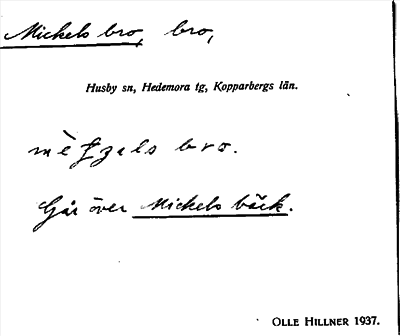 Mickels bro, bro,
Husby sn, Hedemora tg, Kopparbergs län.
bro.
Går över Mickels bäck.
OLLE HILLNER 1937.